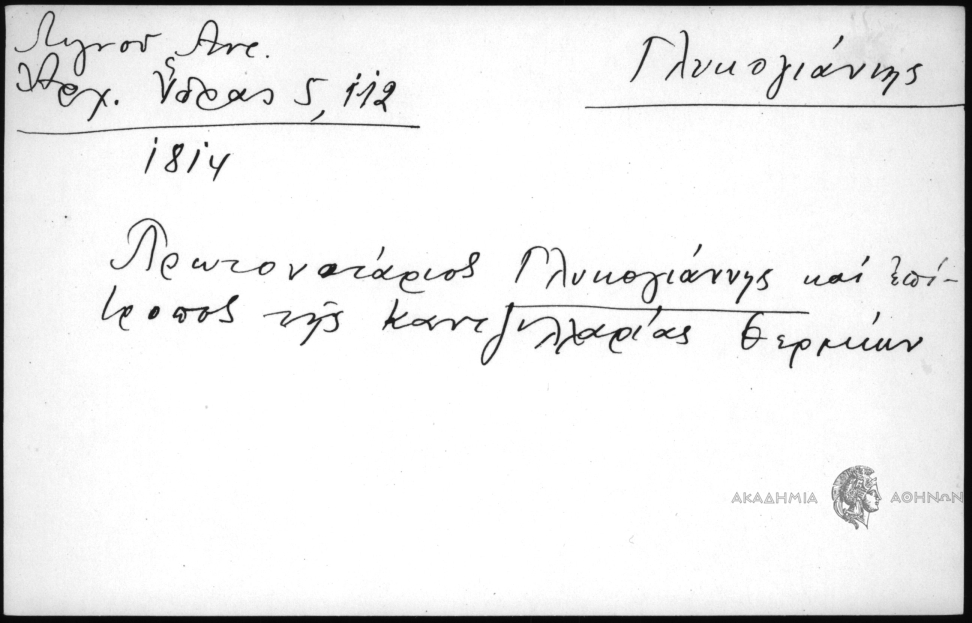 Λιγνοῦ Ἀντ.
Ἀρχ. Ὕδρας 5, 112
1814
Γλυκογιάννης
Πρωτονοτάριος Γλυκογιάννης καί ἐπί-
τροπος τῆς Καντζιλλαρίας Θερμίων
ΑΚΑΔΗΜΙΑ ΑΘΗΝΩΝ